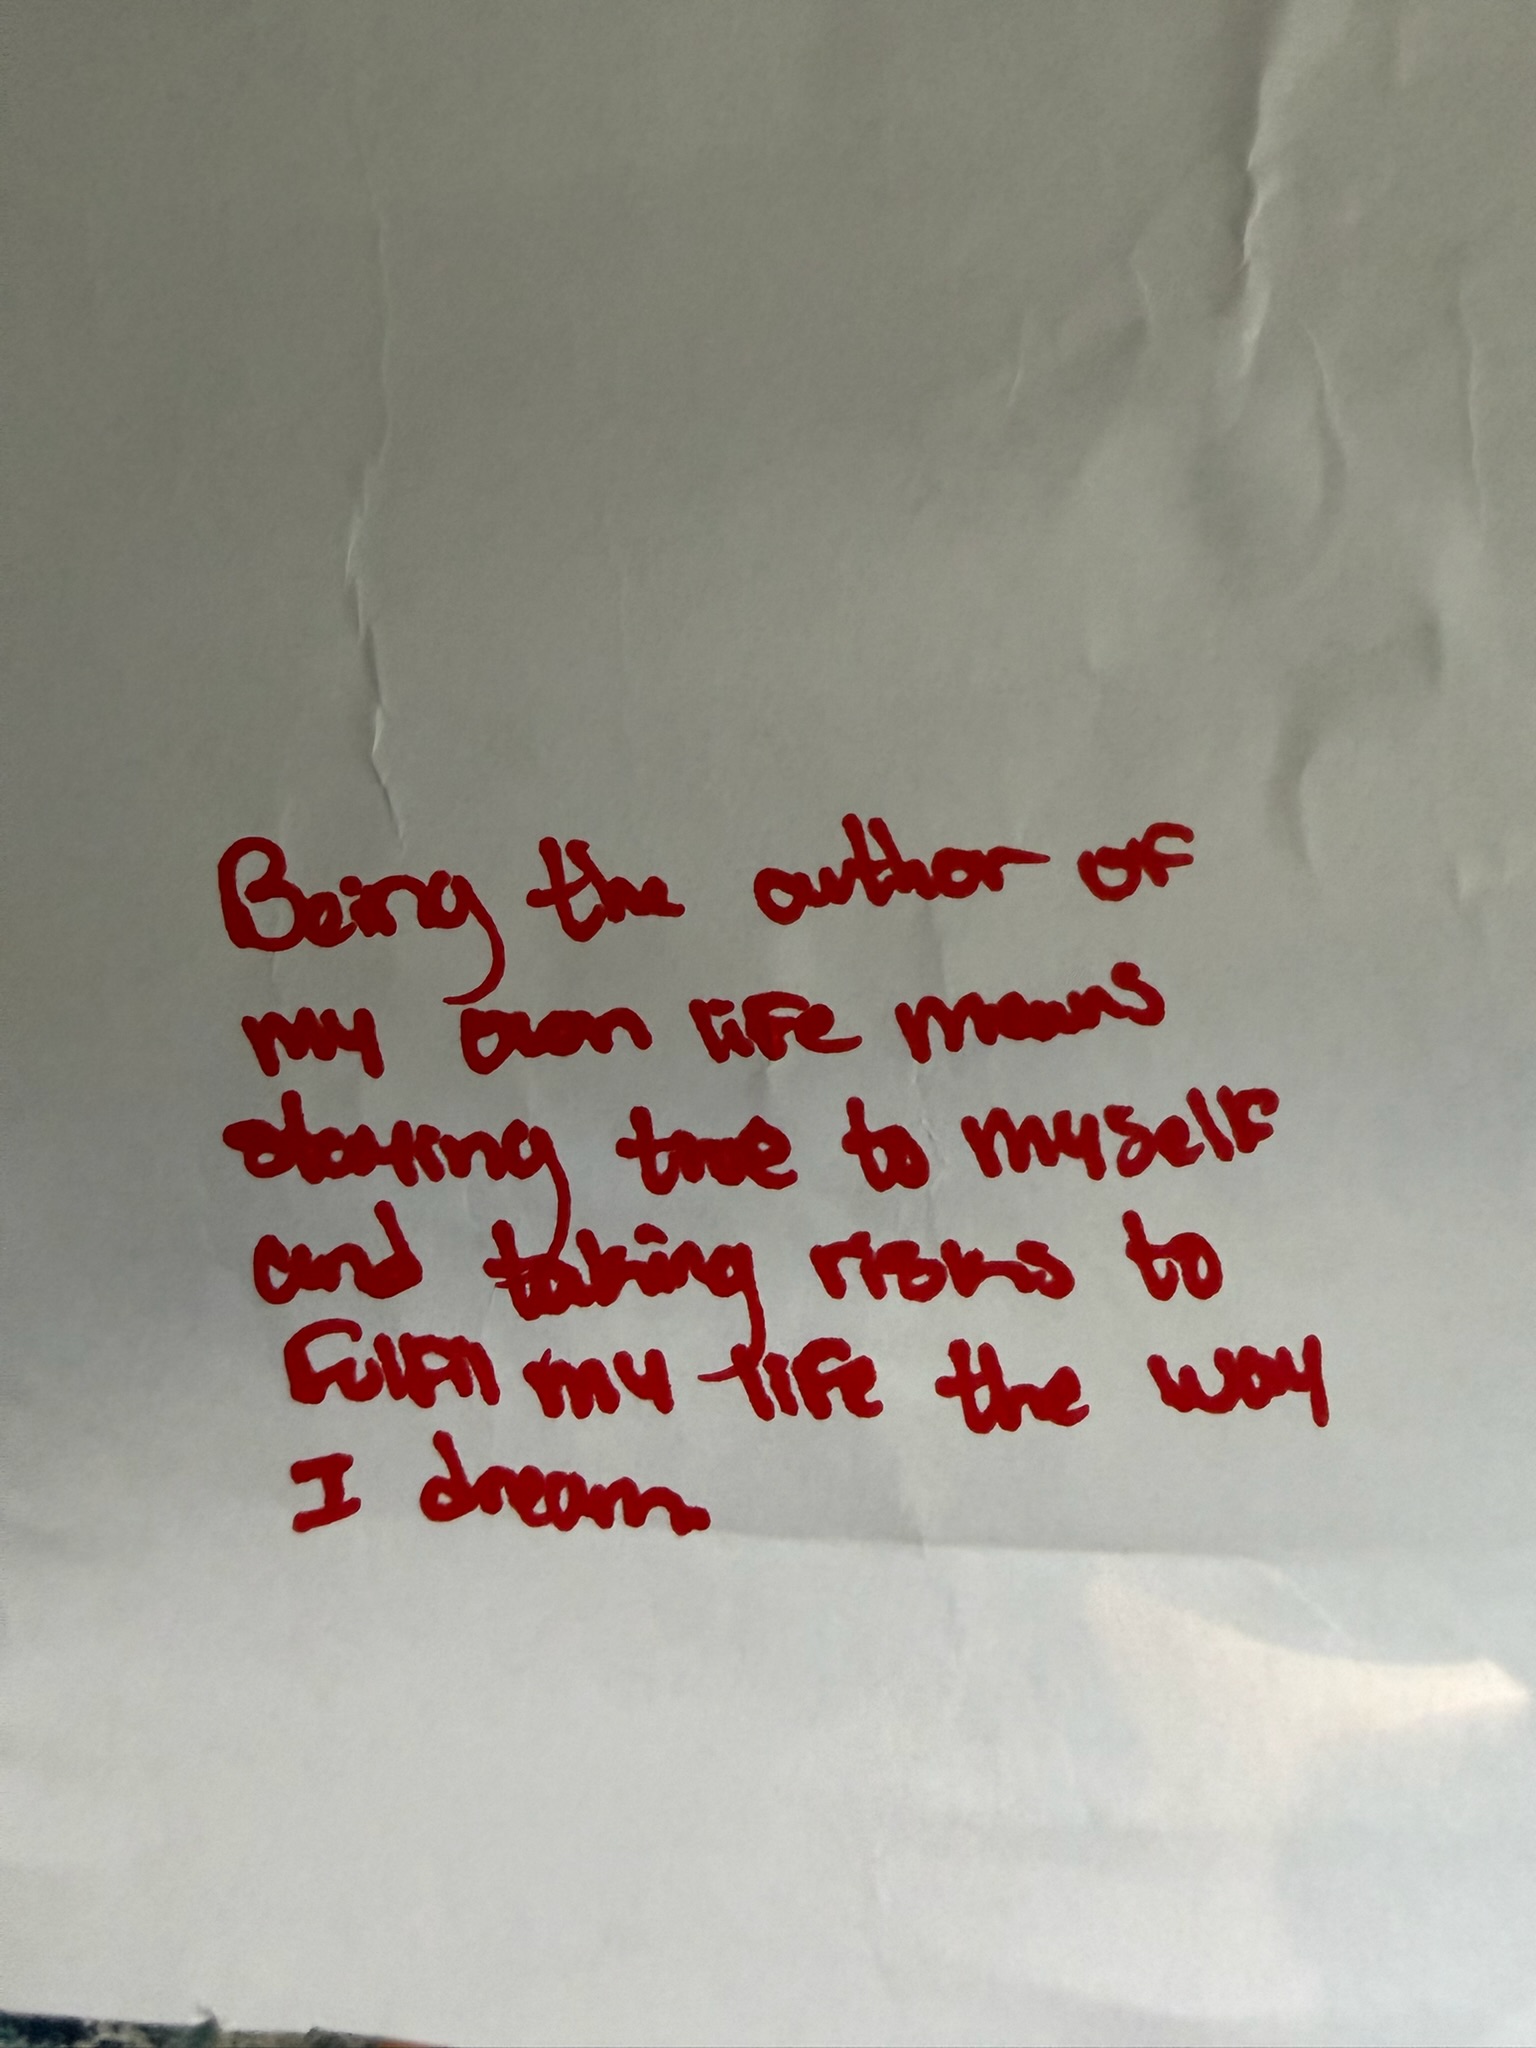 Being the author of
my own life means
staying true to myself
and taking risks to
Fulfil my life the way
I dream